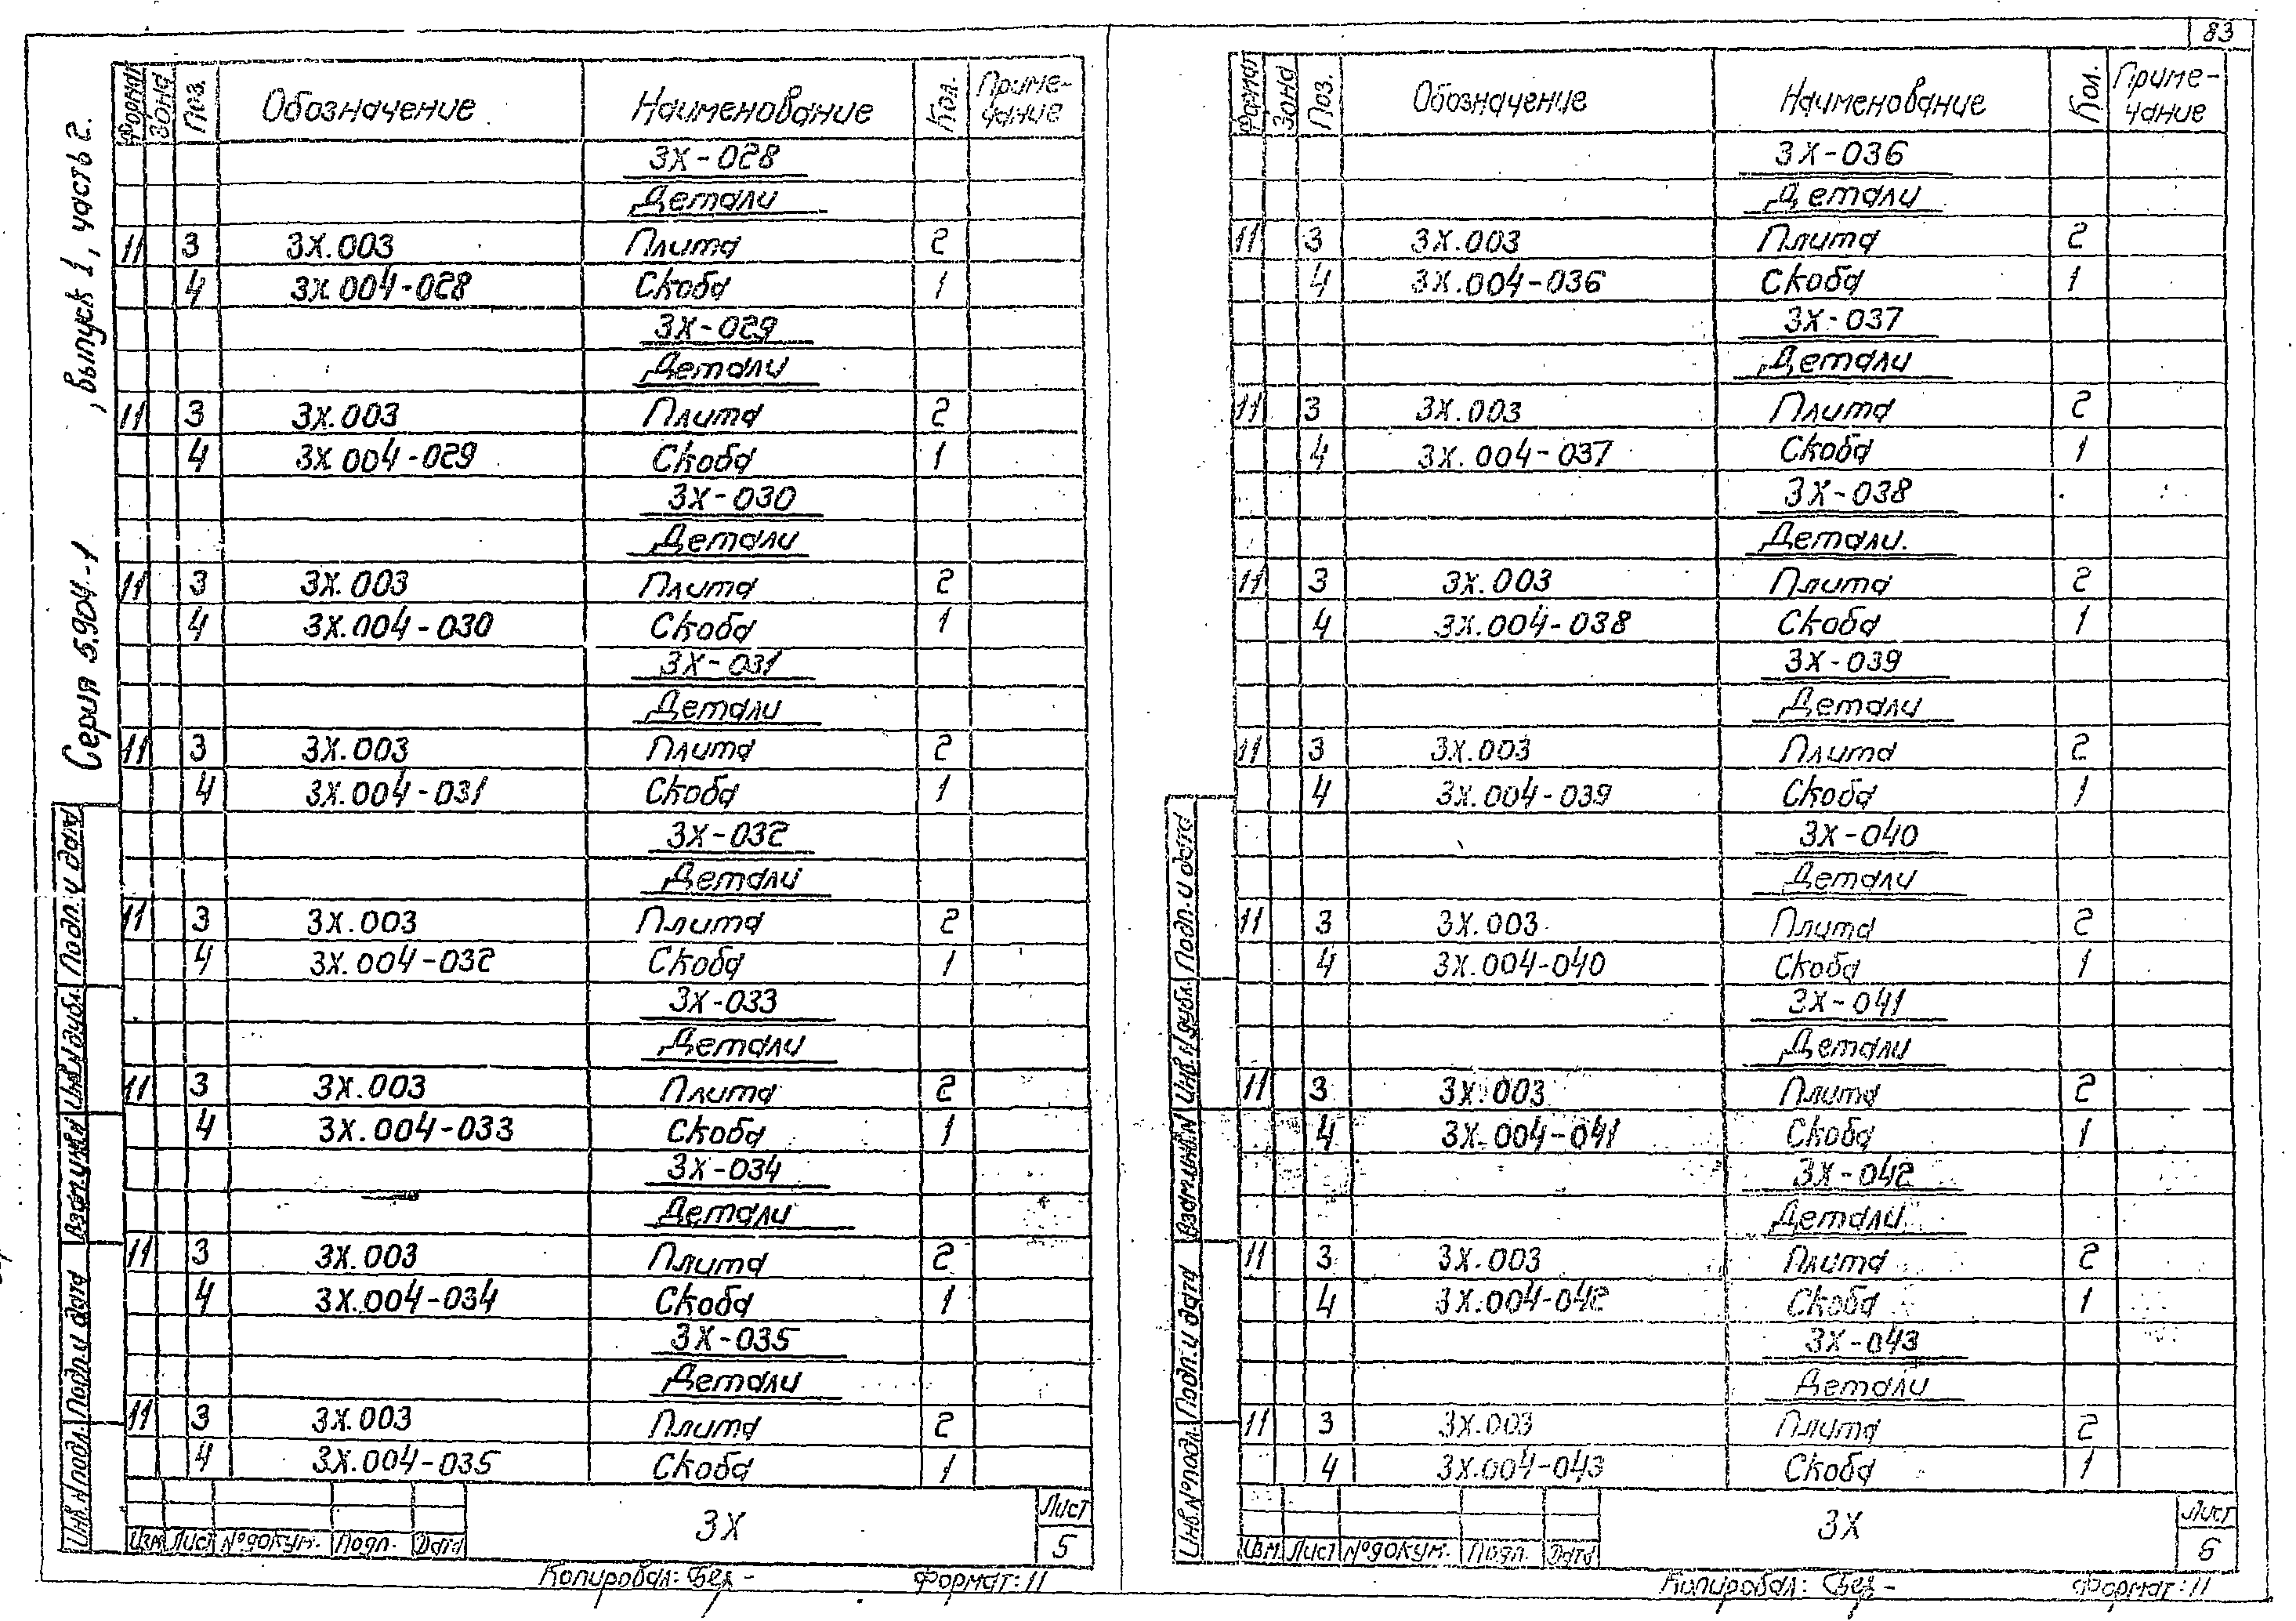 83
Серия 5.904-1 , выпуск 1, часть 2.
Формат Зона Поз. Обозначение Наименование Кол. Приме-
чание
3Х-028
Детали
11 3 3Х.003 Плита 2
4 3Х.004-028 Скоба 1
3Х-029
Детали
11 3 3Х.003 Плита 2
4 3Х.004-029 Скоба 1
3Х-030
Детали
11 3 3Х.003 Плита 2
4 3Х.004-030 Скоба 1
3Х-031
Детали
11 3 3Х.003 Плита 2
4 3Х.004-031 Скоба 1
3Х-032
Детали
11 3 3Х.003 Плита 2
4 3Х.004-032 Скоба 1
3Х-033
Детали
11 3 3Х.003 Плита 2
4 3Х.004-033 Скоба 1
3Х-034
Детали
11 3 3Х.003 Плита 2
4 3Х.004-034 Скоба 1
3Х-035
Детали
11 3 3Х.003 Плита 2
4 3Х.004-035 Скоба 1
Инв.N подл. Подп. и дата Взам.инв.N Инв.N дубл. Подп. и дата
Изм Лист №докум. Подп. Дата
3Х
Лист
5
Копировал: Формат: 11
Формат Зона Поз. Обозначение Наименование Кол. Приме-
чание
3Х-036
Детали
11 3 3Х.003 Плита 2
4 3Х.004-036 Скоба 1
3Х-037
Детали
11 3 3Х.003 Плита 2
4 3Х.004-037 Скоба 1
3Х-038
Детали.
11 3 3Х.003 Плита 2
4 3Х.004-038 Скоба 1
3Х-039
Детали
11 3 3Х.003 Плита 2
4 3Х.004-039 Скоба 1
3Х-040
Детали
11 3 3Х.003 Плита 2
4 3Х.004-040 Скоба 1
3Х-041
Детали
11 3 3Х.003 Плита 2
4 3Х.004-041 Скоба 1
3Х-042
Детали
11 3 3Х.003 Плита 2
4 3Х.004-042 Скоба 1
3Х-043
Детали
11 3 3Х.003 Плита 2
4 3Х.004-043 Скоба 1
Инв.№подл. Подп. и дата Взам.инв.N Инв.N дубл. Подп. и дата
Изм. Лист №докум. Подп. Дата
3Х
Лист
6
Копировал: Формат: 11